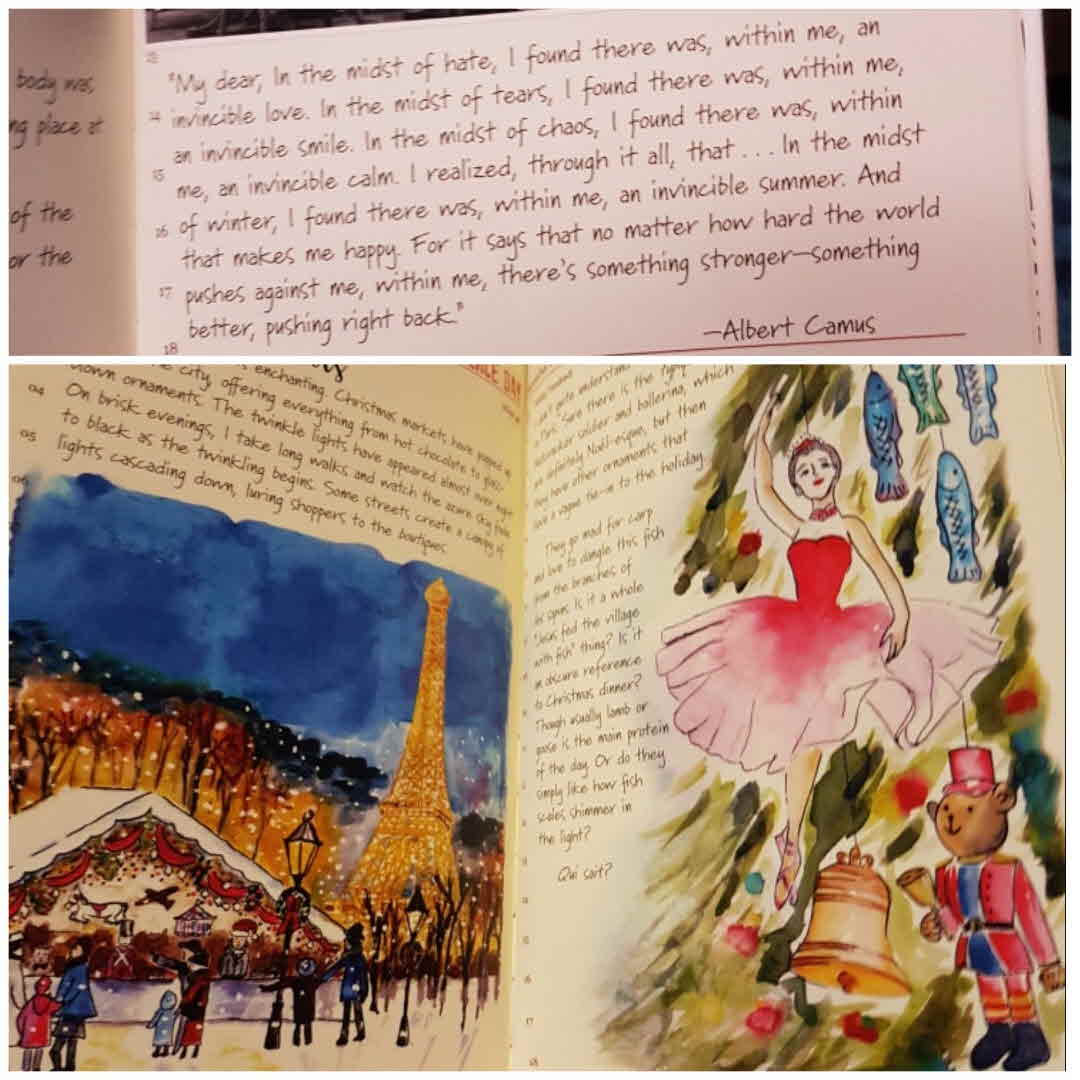 body was
ng place at
of the
or the
13
"My dear, In the midst of hate, I found there was, within me, an
14 invincible love. In the midst of tears, I found there was, within me,
an invincible smile. In the midst of chaos, I found there was, within
15 me, an invincible calm. I realized, through it all, that... In the midst
16 of winter, I found there was, within me, an invincible summer. And
that makes me happy. For it says that no matter how hard the world
17 pushes against me, within me, there's something stronger—something
better, pushing right back."
18
—Albert Camus
city, offering enchanting. Christmas markets have popped up
blown ornaments. everything from hot chocolate to glass-
04 The twinkle lights have appeared almost over night
On brisk evenings, I take long walks and watch the azure sky fade
05 to black as the twinkling begins. Some streets create a canopy of
lights cascading down, luring shoppers to the boutiques.
DAY
quite understand
Paris. Sure there is the
nutcracker soldier and ballerina, which
definitely Noël-esque, but then
they have other ornaments that
have a vague to the holiday.
They go mad for carp
and love to dangle this fish
from the branches of
Is it a whole
"Jesus fed the village
with fish" thing? Is it
an obscure reference
to Christmas dinner?
Though usually lamb or
goose is the main protein
of the day. Or do they
simply like how fish
scales shimmer in
the light?
Qui sait?
17
18